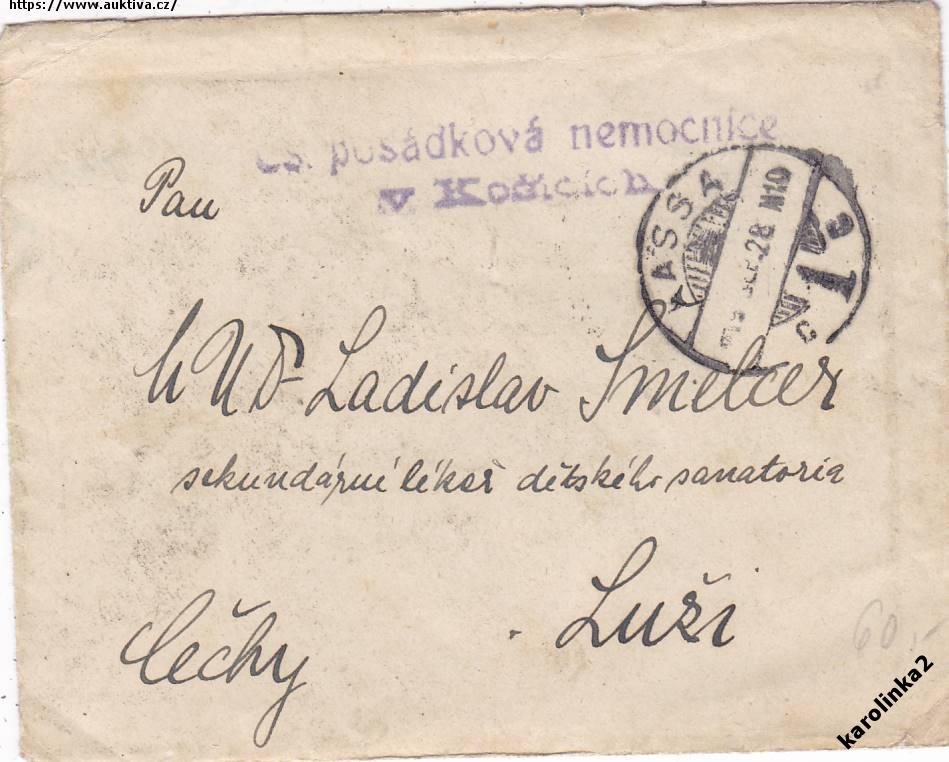 https://www.auktiva.cz/
čs. posádková nemocnice
v Košicích
Pan
KASSA
28 N10
1
B
C
MUDr Ladislav Smelcer
sekundární lékař dětského sanatoria
Luži
Čechy
60,-
karolinka2